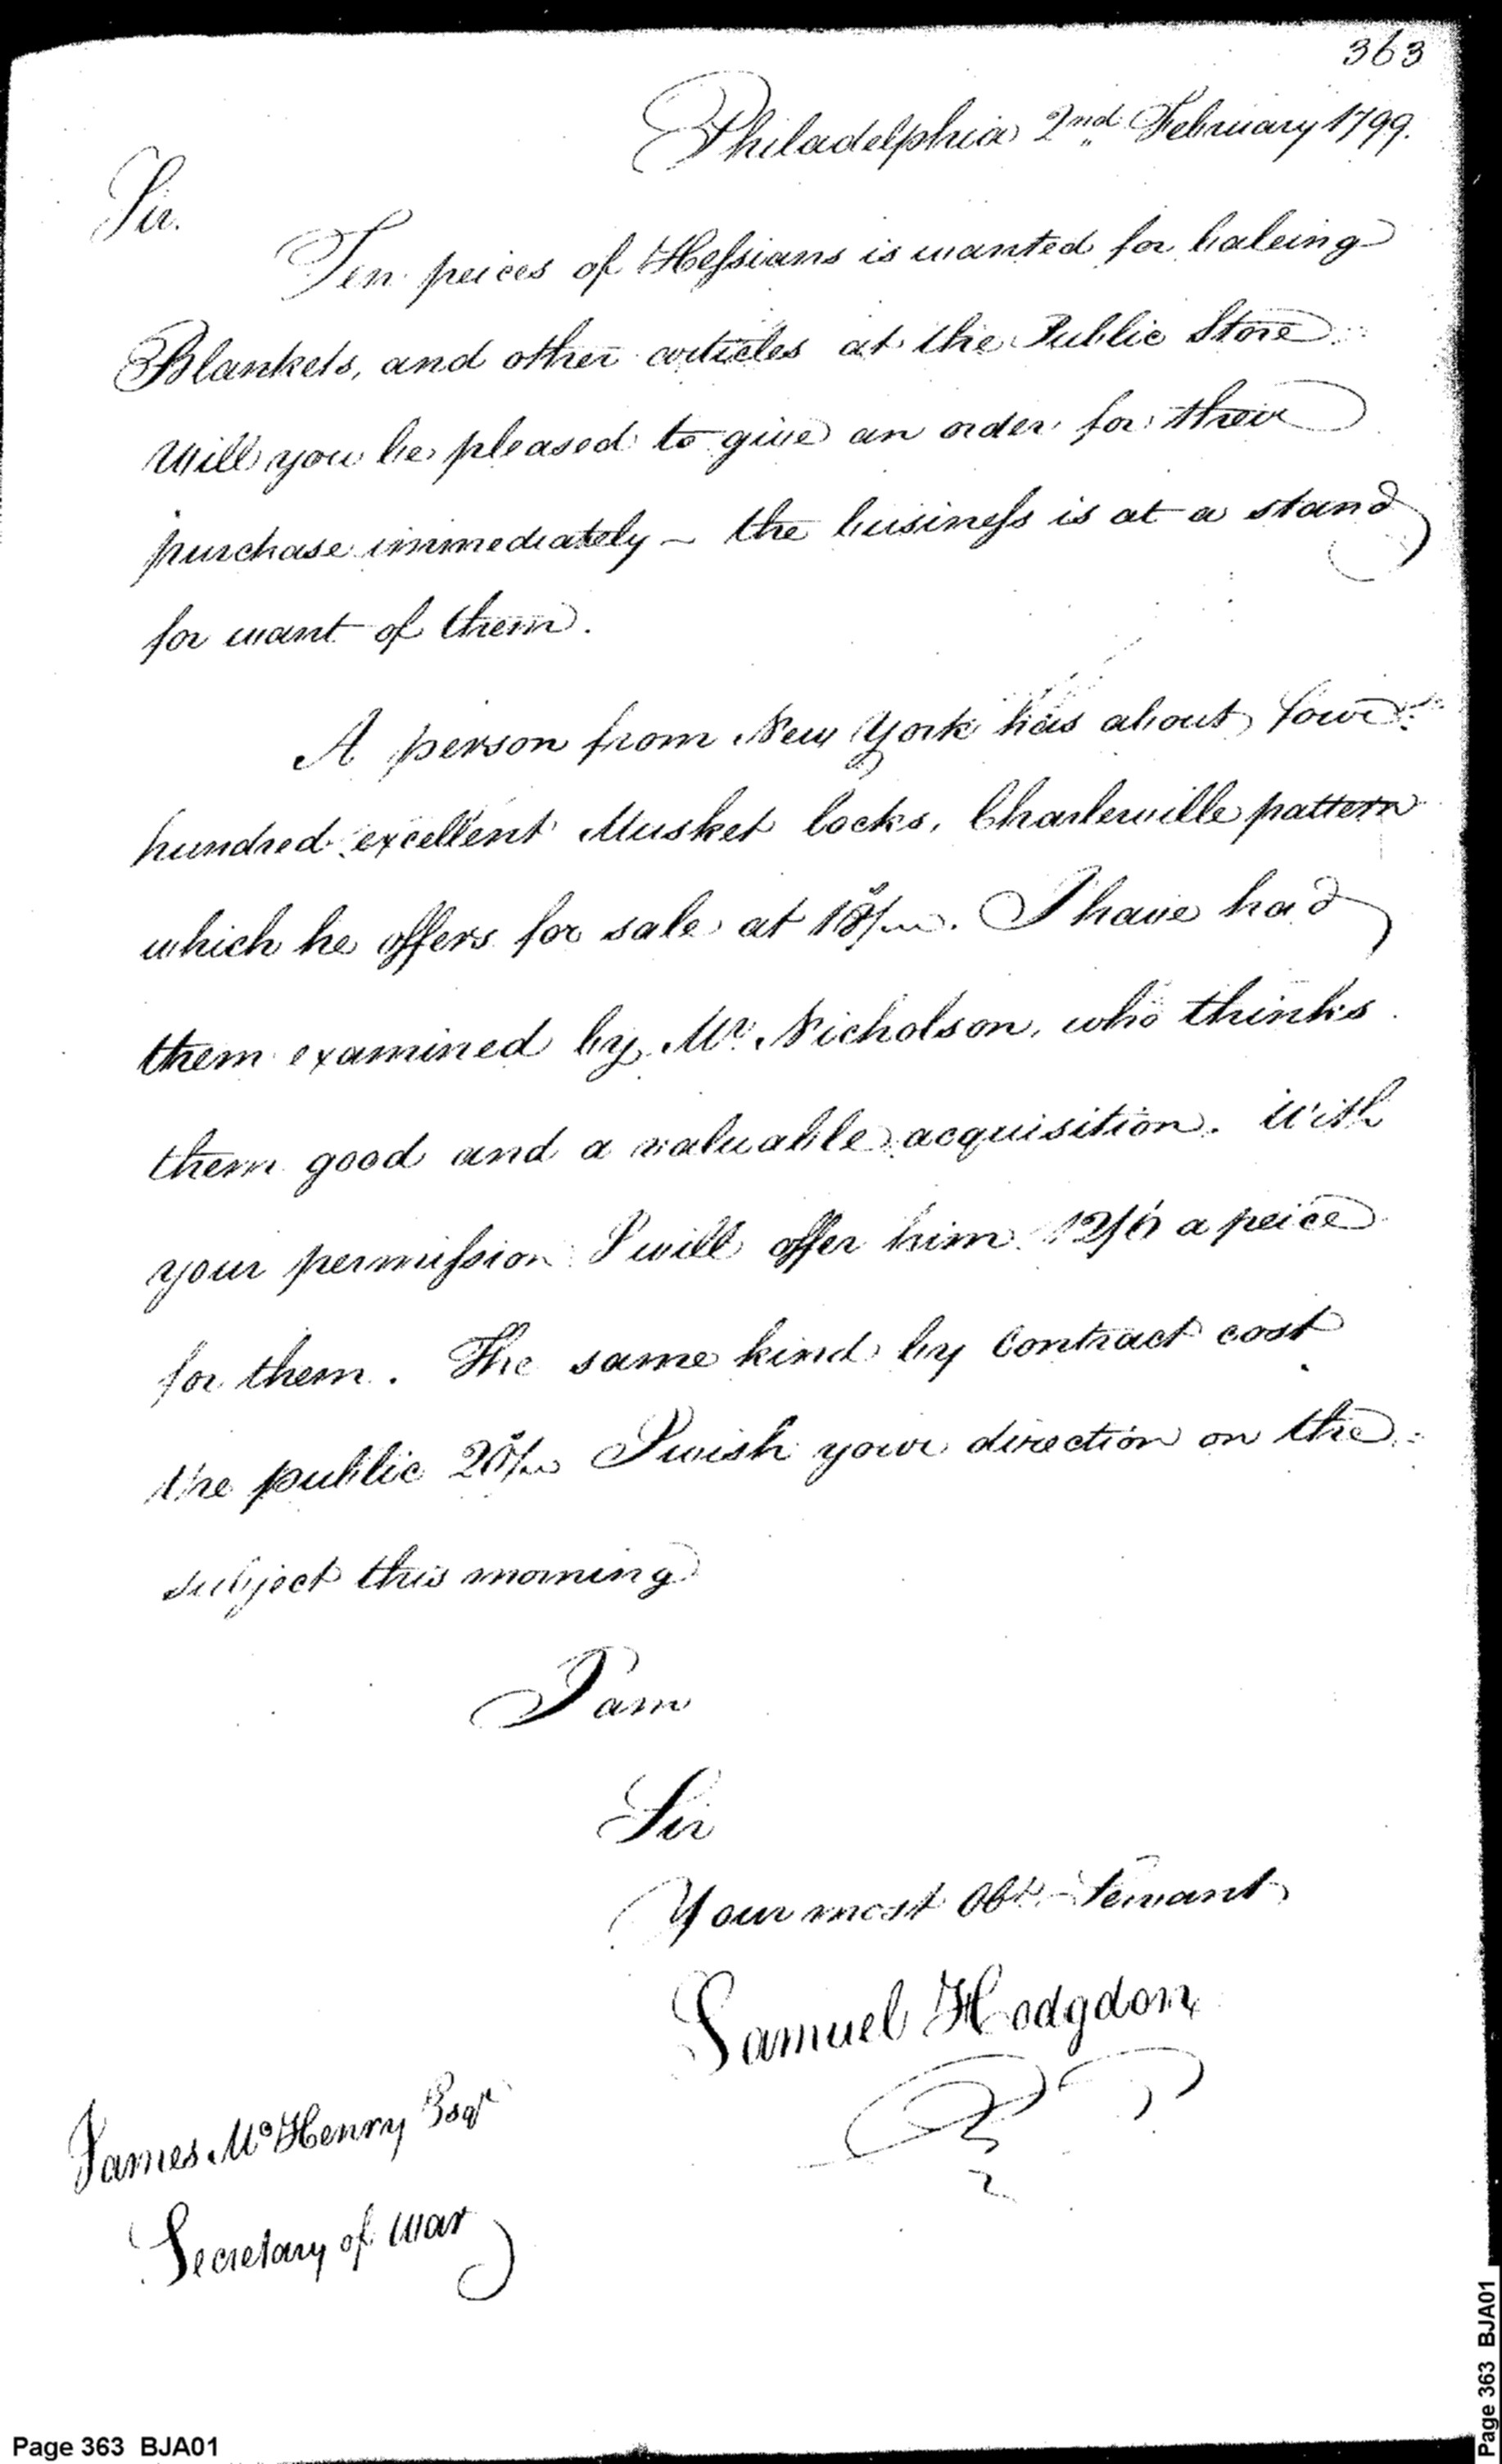 363
Philadelphia 2nd February 1799.
Sir.
Ten peices of Hessians is wanted for baleing
Blankets, and other articles at the Public Store
Will you be pleased to give an order for their
purchase immediately – the business is at a stand
for want of them.
A person from New York has about four
hundred excellent Musket locks, Charleville pattern
which he offers for sale at 15/. I have had
them examined by Mr. Nicholson, who thinks
them good and a valuable acquisition. With
your permission I will offer him 12/6 a peice
for them. The same kind by Contract cost
the public 20/ I wish your direction on the
subject this morning
I am
Sir
Your most Obt. Servant
Samuel Hodgdon
James McHenry Esqr
Secretary of War
Page 363 BJA01
Page 363 BJA01